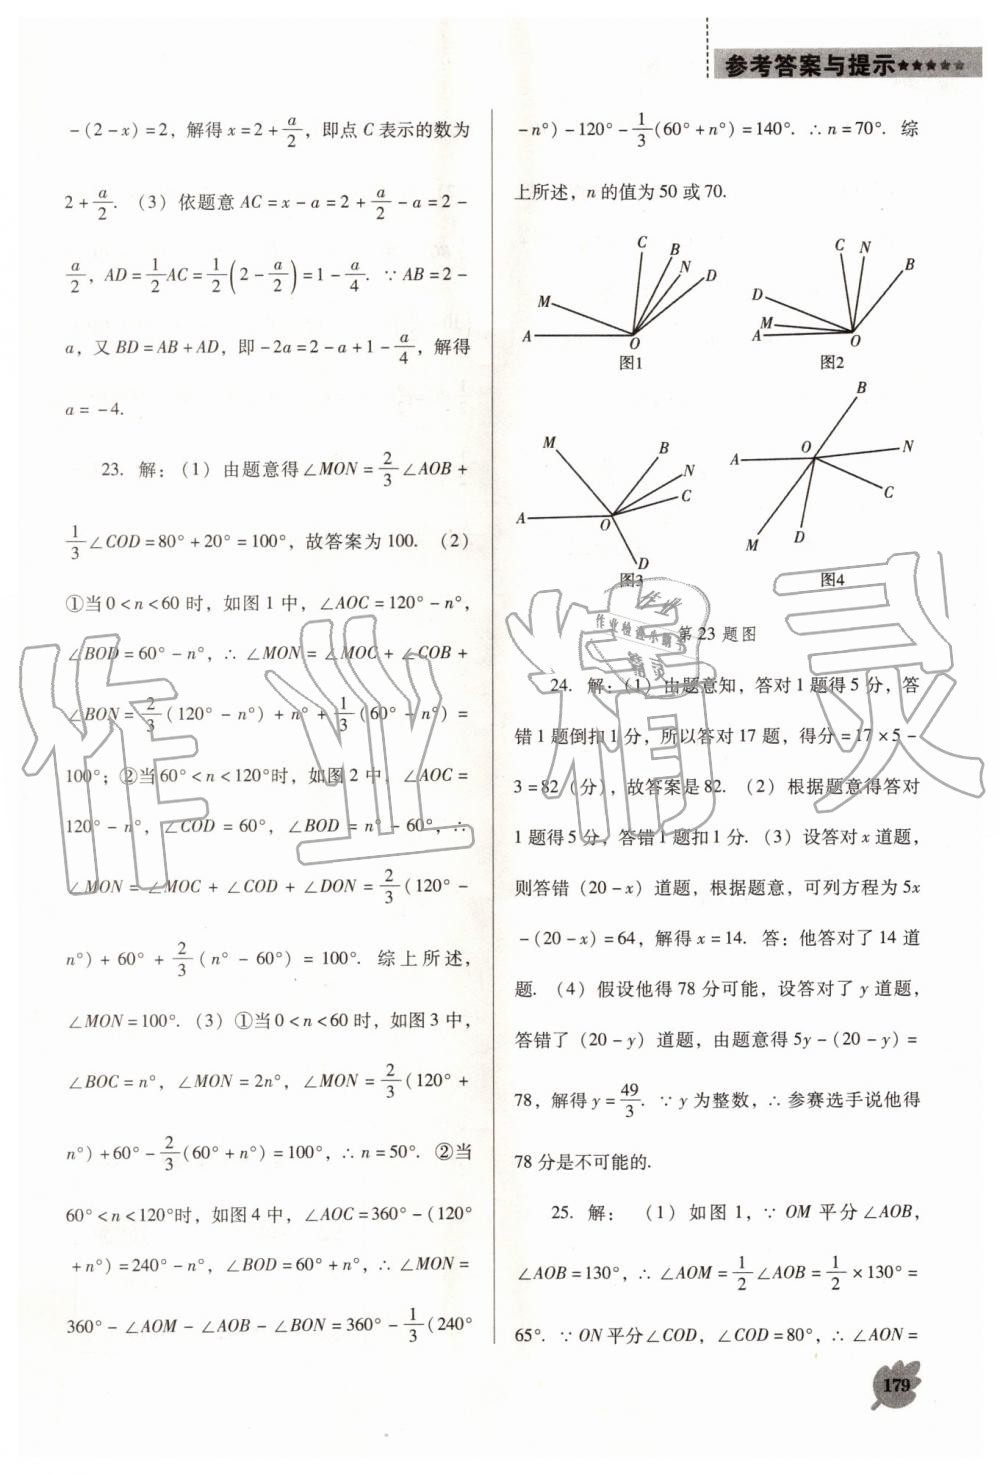 参考答案与提示★★★★★
-(2-x)=2，解得x=2+a/2，即点C表示的数为
2+a/2. (3) 依题意AC=x-a=2+a/2-a=2-
a/2，AD=1/2AC=1/2(2-a/2)=1-a/4. ∵AB=2-
a，又BD=AB+AD，即-2a=2-a+1-a/4，解得
a=-4.
23. 解：(1) 由题意得∠MON=2/3∠AOB+
1/3∠COD=80°+20°=100°，故答案为100. (2)
①当0<n<60时，如图1中，∠AOC=120°-n°，
∠BOD=60°-n°，∴∠MON=∠MOC+∠COB+
∠BON=2/3(120°-n°)+n°+1/3(60°-n°)=
100°；②当60°<n<120°时，如图2中，∠AOC=
120°-n°，∠COD=60°，∠BOD=n°-60°，∴
∠MON=∠MOC+∠COD+∠DON=2/3(120°-
n°)+60°+2/3(n°-60°)=100°. 综上所述，
∠MON=100°. (3) ①当0<n<60时，如图3中，
∠BOC=n°，∠MON=2n°，∠MON=2/3(120°+
n°)+60°-2/3(60°+n°)=100°，∴n=50°. ②当
60°<n<120°时，如图4中，∠AOC=360°-(120°
+n°)=240°-n°，∠BOD=60°+n°，∴∠MON=
360°-∠AOM-∠AOB-∠BON=360°-1/3(240°
-n°)-120°-1/3(60°+n°)=140°. ∴n=70°. 综
上所述，n的值为50或70.
C B N D M A O
图1
C N B D M A O
图2
M B N C A O D
图3
B O N A C M D
图4
第23题图
24. 解：(1) 由题意知，答对1题得5分，答
错1题倒扣1分，所以答对17题，得分=17×5-
3=82（分），故答案是82. (2) 根据题意得答对
1题得5分，答错1题扣1分. (3) 设答对x道题，
则答错（20-x）道题，根据题意，可列方程为5x
-(20-x)=64，解得x=14. 答：他答对了14道
题. (4) 假设他得78分可能，设答对了y道题，
答错了（20-y）道题，由题意得5y-(20-y)=
78，解得y=49/3. ∵y为整数，∴参赛选手说他得
78分是不可能的.
25. 解： (1) 如图1，∵OM平分∠AOB，
∠AOB=130°，∴∠AOM=1/2∠AOB=1/2×130°=
65°. ∵ON平分∠COD，∠COD=80°，∴∠AON=
179
作业精灵
作业
作业检查小助手
精灵